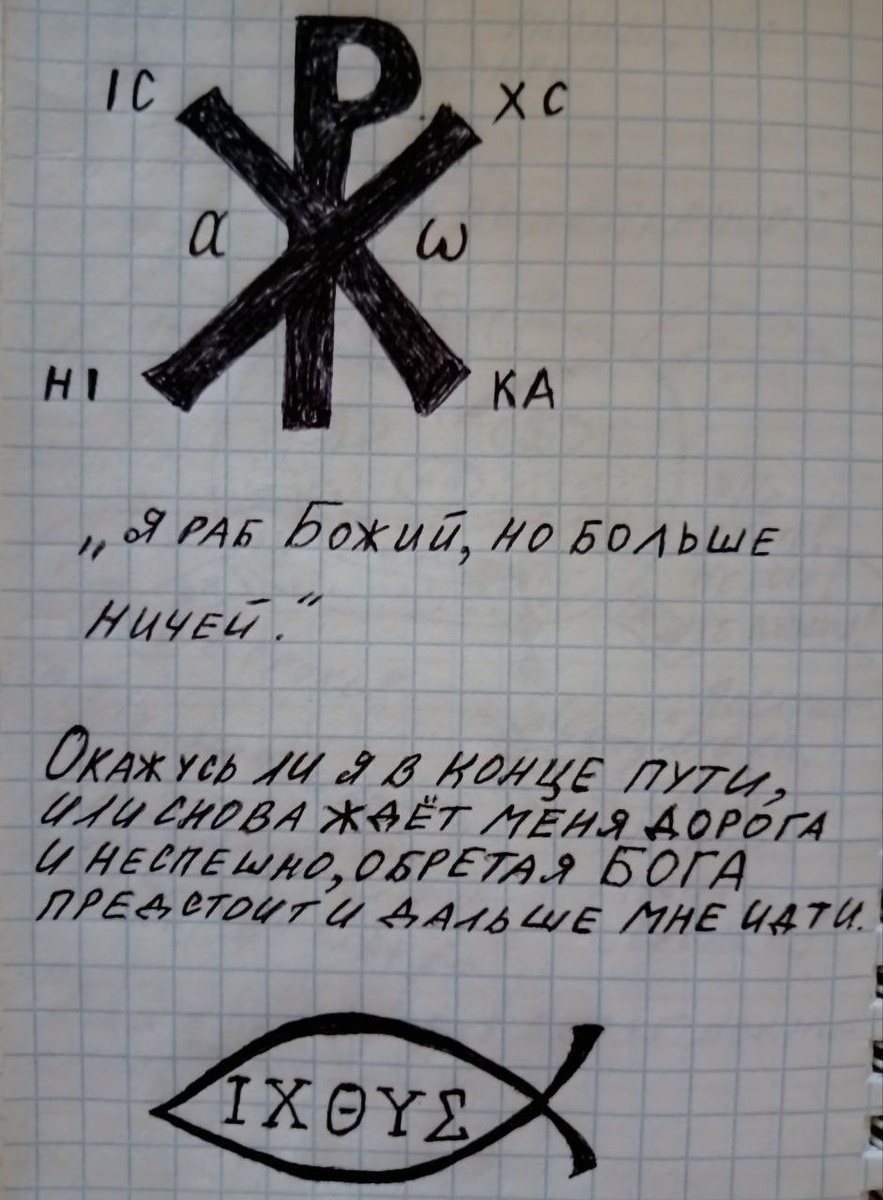 IC XC
α ω
НІ КА
„Я РАБ БОЖИЙ, НО БОЛЬШЕ
НИЧЕЙ.“
ОКАЖУСЬ ЛИ Я В КОНЦЕ ПУТИ,
ИЛИ СНОВА ЖДЁТ МЕНЯ ДОРОГА
И НЕСПЕШНО, ОБРЕТАЯ БОГА
ПРЕДСТОИТ И ДАЛЬШЕ МНЕ ИДТИ.
ΙΧΘΥΣ